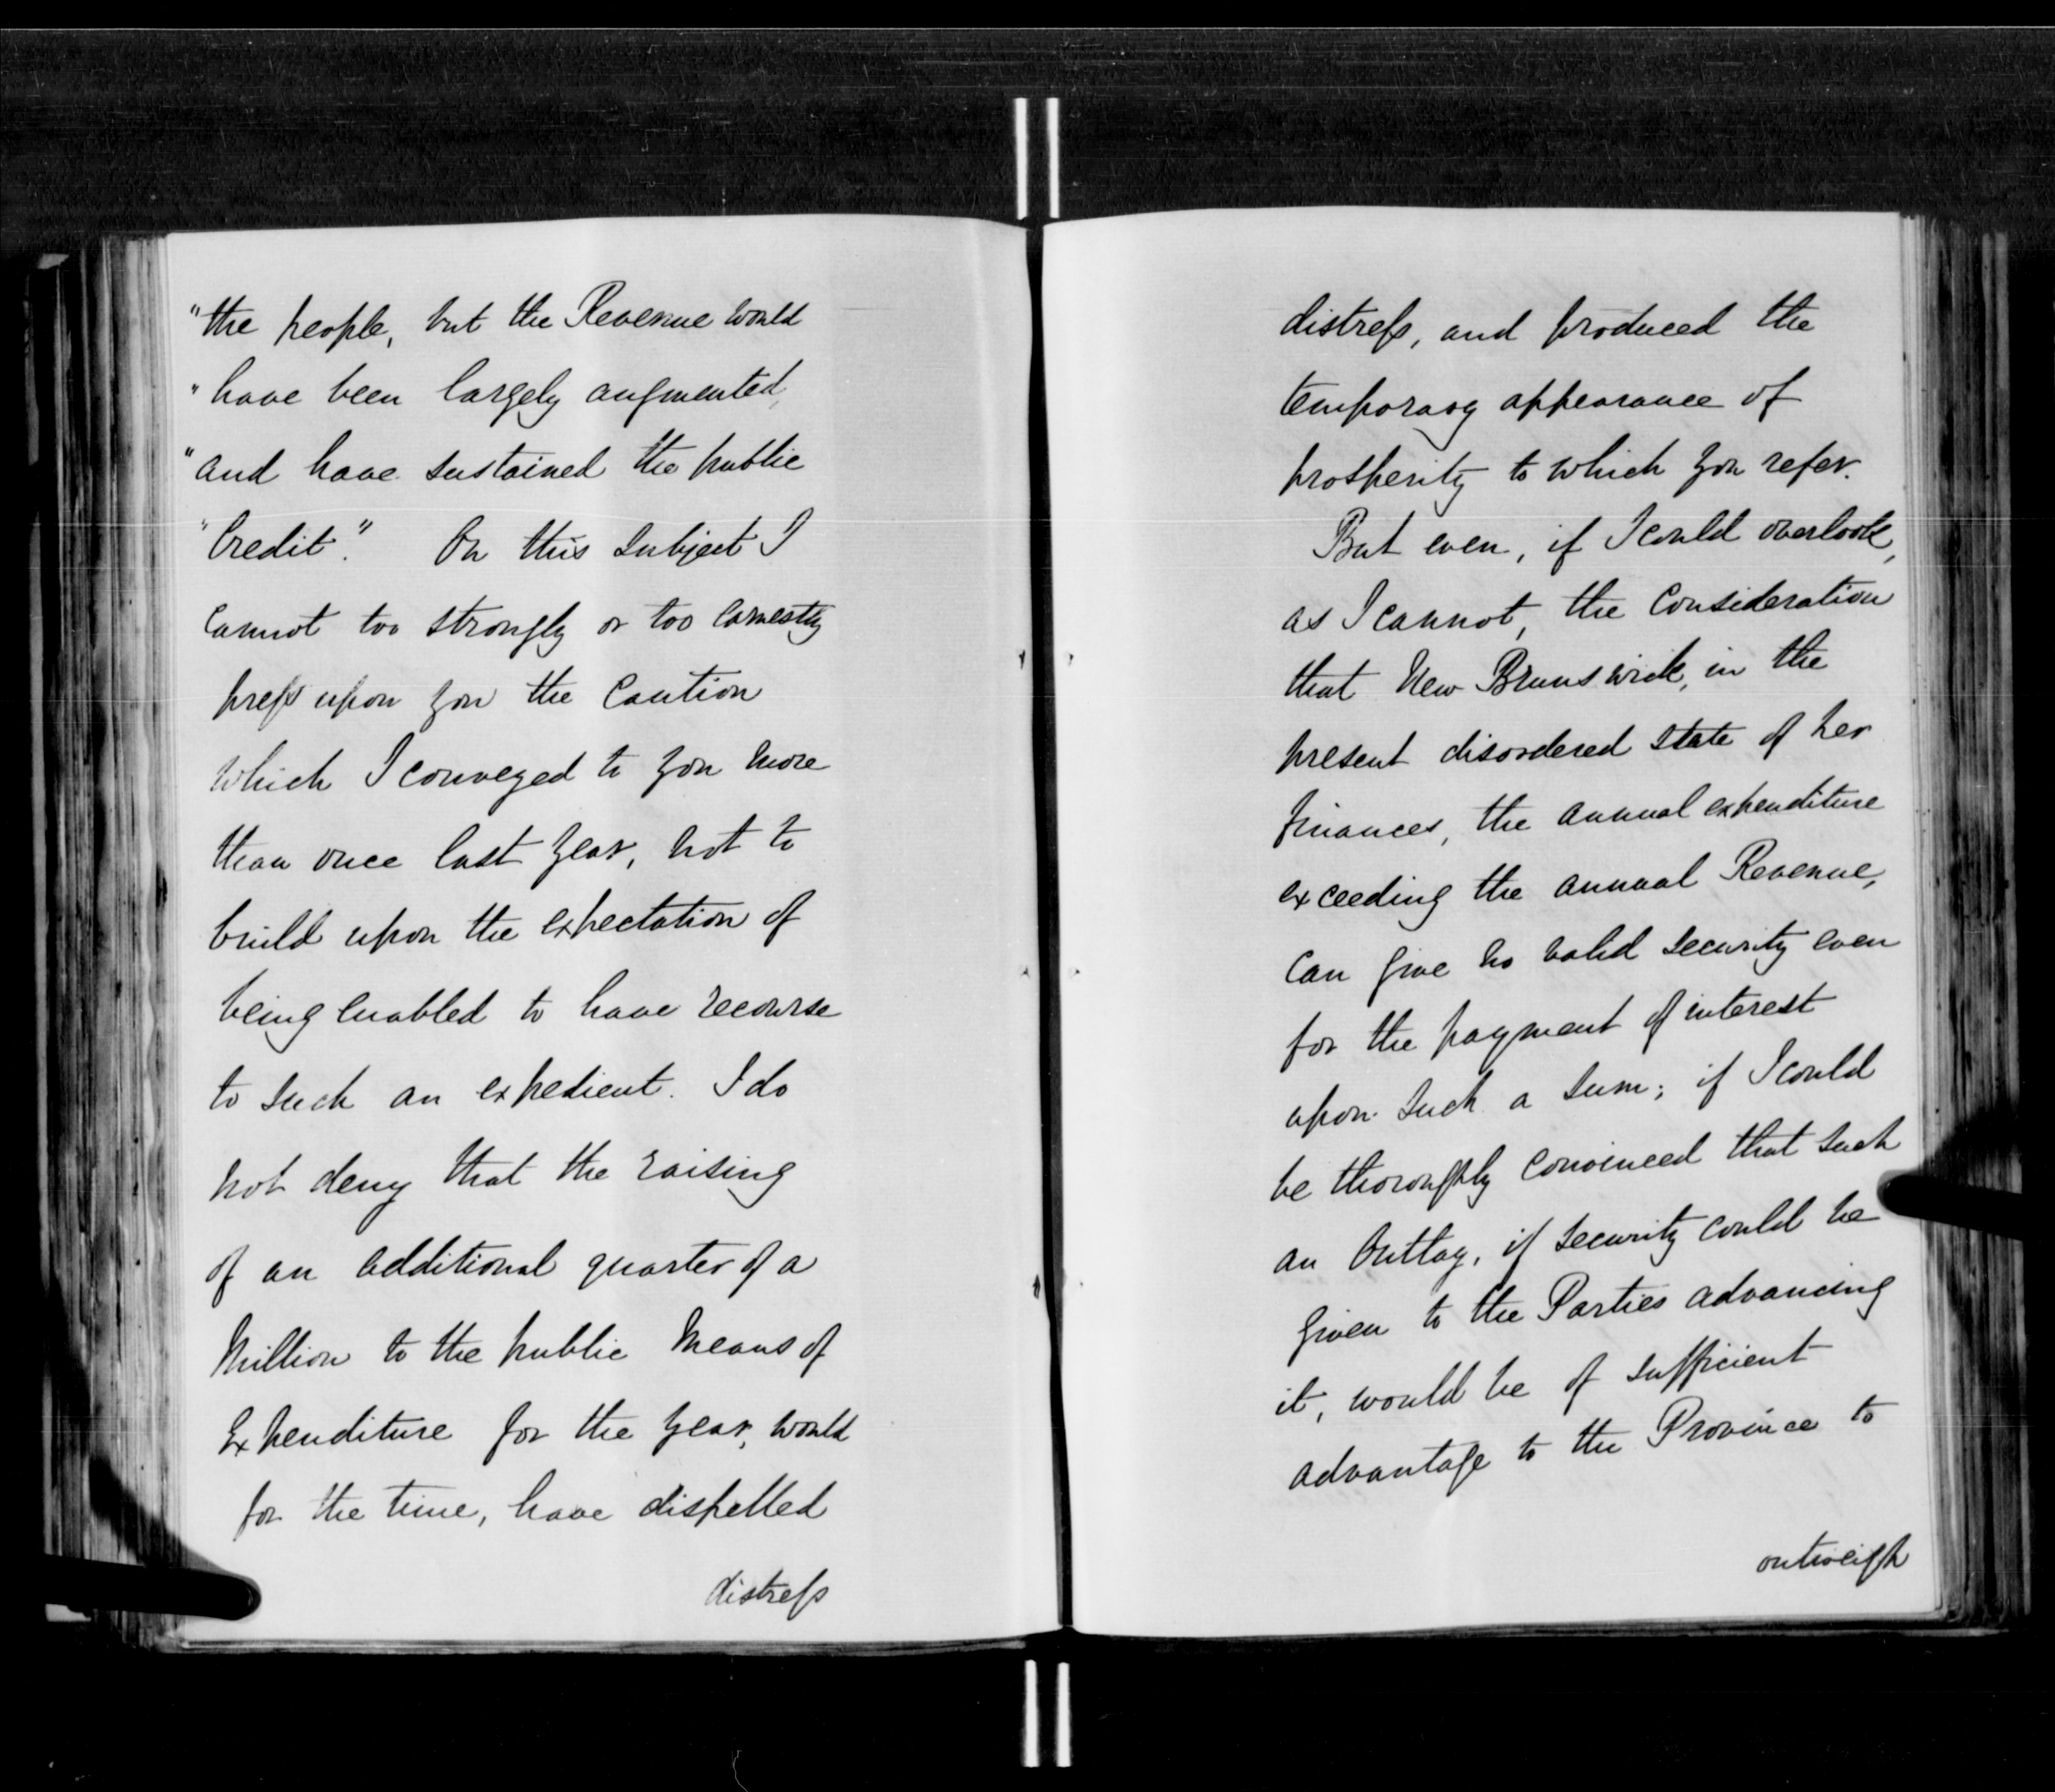 "the people, but the Revenue would
"have been largely augmented,
"and have sustained the public
"Credit." On this subject I
cannot too strongly or too earnestly
press upon you the Caution
which I conveyed to you more
than once last year, not to
build upon the expectation of
being enabled to have recourse
to such an expedient. I do
not deny that the raising
of an additional quarter of a
Million to the public Means of
Expenditure for the year, would
for the time, have dispelled
distress
distress, and produced the
temporary appearance of
prosperity to which you refer.
But even, if I could overlook,
as I cannot, the Consideration
that New Brunswick, in the
present disordered state of her
finances, the annual expenditure
exceeding the annual Revenue,
Can give no valid security even
for the payment of interest
upon such a sum; if I could
be thoroughly convinced that such
an Outlay, if security could be
given to the Parties advancing
it, would be of sufficient
advantage to the Province to
outweigh